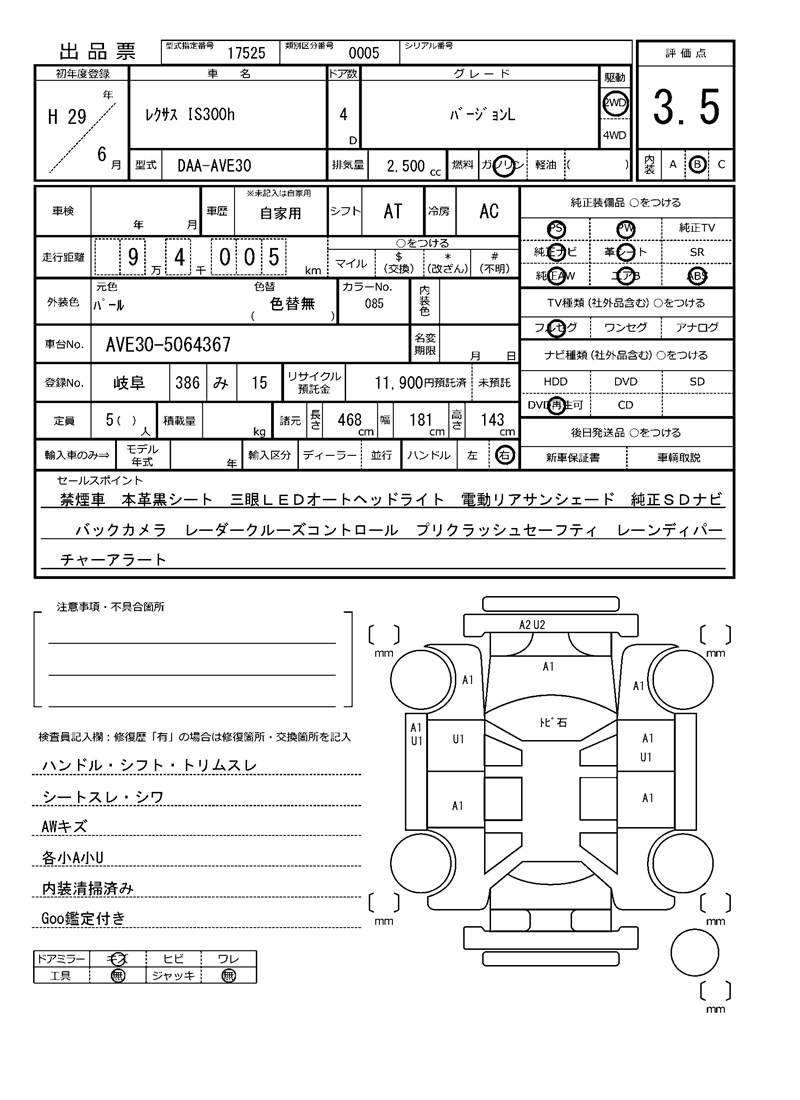 出品票 型式指定番号 17525 類別区分番号 0005 シリアル番号
評価点
3.5
内装 A B C
初年度登録 車名 ドア数 グレード 駆動
H 29 年 6 月 レクサス IS300h 4 D バージョンL 2WD 4WD
型式 DAA-AVE30 排気量 2,500 cc 燃料 ガソリン 軽油 ( )
車検 年 月 車歴 ※未記入は自家用 自家用 シフト AT 冷房 AC
走行距離 9 万 4 千 0 0 5 km ○をつける
マイル $(交換) *(改ざん) #(不明)
外装色 元色 パール 色替 色替無 ( ) カラーNo. 085 内装色
車台No. AVE30-5064367 名変期限 月 日
登録No. 岐阜 386 み 15 リサイクル預託金 11,900円預託済 未預託
定員 5( )人 積載量 kg 諸元 長さ 468 cm 幅 181 cm 高さ 143 cm
輸入車のみ⇒ モデル年式 年 輸入区分 ディーラー 並行 ハンドル 左 右
純正装備品 ○をつける
PS PW 純正TV
純正ナビ 革シート SR
純正AW エアB ABS
TV種類(社外品含む)○をつける
フルセグ ワンセグ アナログ
ナビ種類(社外品含む)○をつける
HDD DVD SD
DVD再生可 CD
後日発送品 ○をつける
新車保証書 車輌取説
セールスポイント
禁煙車 本革黒シート 三眼LEDオートヘッドライト 電動リアサンシェード 純正SDナビ
バックカメラ レーダークルーズコントロール プリクラッシュセーフティ レーンディパー
チャーアラート
注意事項・不具合箇所
検査員記入欄:修復歴「有」の場合は修復箇所・交換箇所を記入
ハンドル・シフト・トリムスレ
シートスレ・シワ
AWキズ
各小A小U
内装清掃済み
Goo鑑定付き
ドアミラー キズ ヒビ ワレ
工具 無 ジャッキ 無
A2 U2
mm mm
A1
A1 A1
トビ石
A1 U1
U1
A1
U1
A1 A1
mm mm
mm